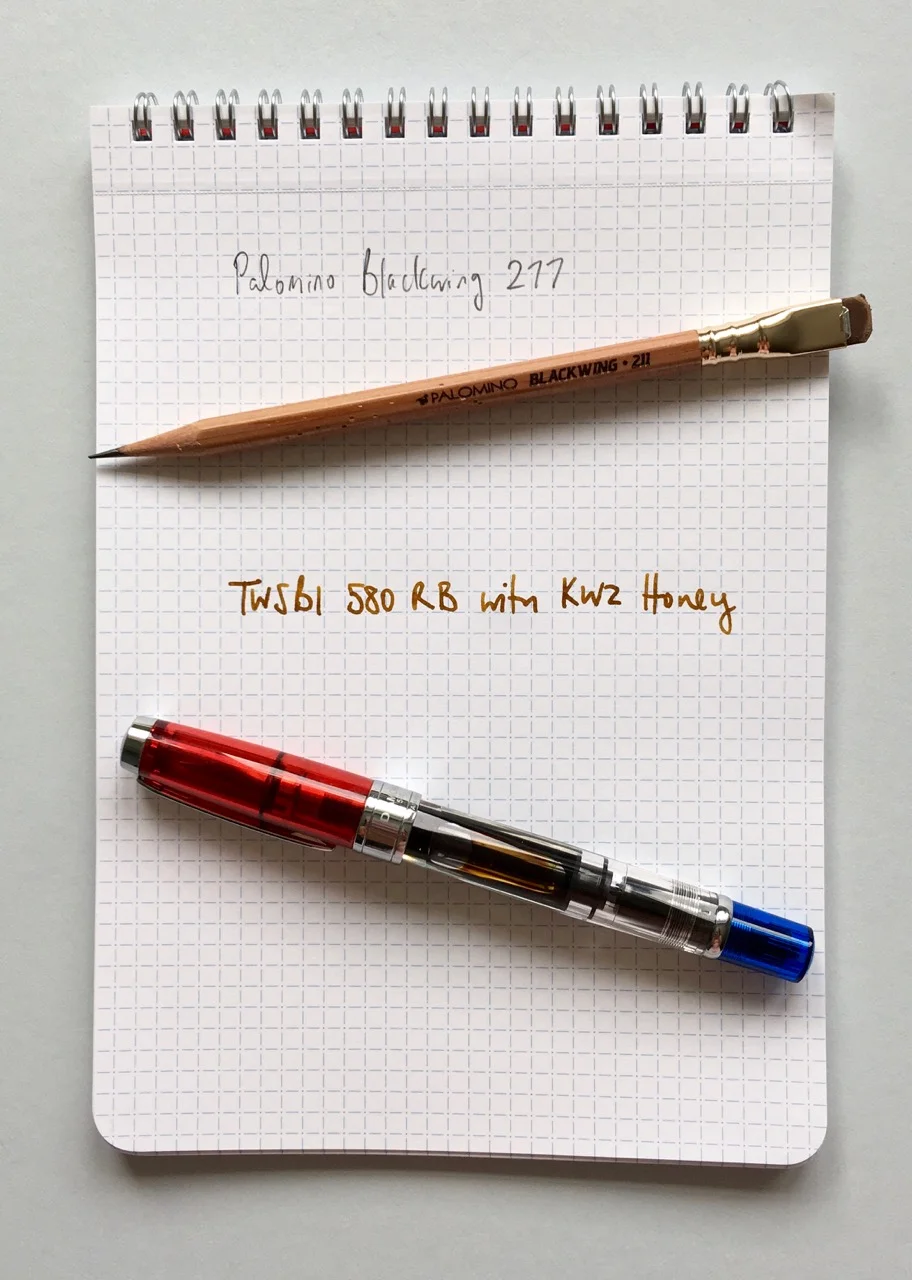 Palomino Blackwing 277
PALOMINO BLACKWING • 211
TWSBI 580 RB with KWZ Honey